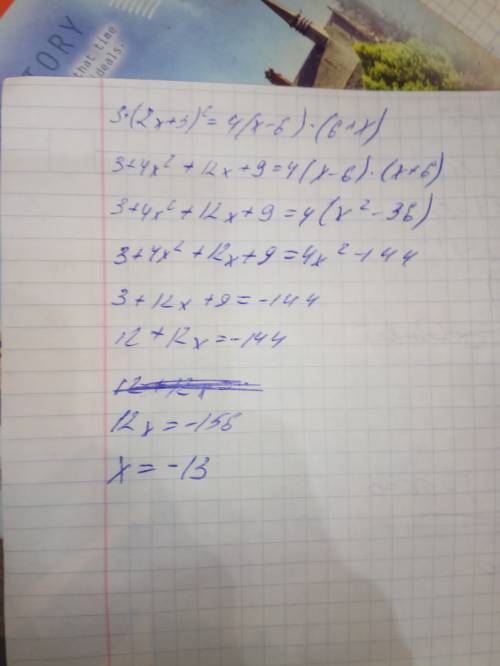 STORY
that time
ideals.
3+(2x+3)²=4(x-6)·(6+x)
3+4x²+12x+9=4(x-6)·(x+6)
3+4x²+12x+9=4(x²-36)
3+4x²+12x+9=4x²-144
3+12x+9=-144
12+12x=-144
12x=-156
x=-13